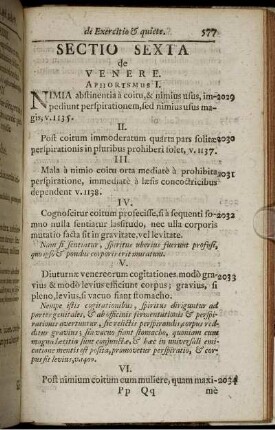 de Exercitio & quiete. 577
SECTIO SEXTA
de
VENERE.
APHORISMUS I.
NIMIA abstinentia à coitu, & nimius usus, im- 2029
pediunt perspirationem, sed nimius usus ma-
gis, v. 1135.
II.
Post coitum immoderatum quarta pars solitæ 2030
perspirationis in pluribus prohiberi solet, v. 1137.
III.
Mala à nimio coitu orta mediatè à prohibita 2031
perspiratione, immediatè à læsis concoctricibus
dependent v. 1138.
IV.
Cognoscitur coitum profecisse, si à sequenti so- 2032
mno nulla sentiatur lassitudo, nec ulla corporis
mutatio facta sit in gravitate, vel levitate.
Nam si sentiatur, spiritus uberius fuerunt profusi,
quo ipso & pondus corporis erit mutatum.
V.
Diuturnæ venereorum cogitationes modò gra- 2033
vius & modò levius efficiunt corpus; gravius, si
pleno, levius, si vacuo fiant stomacho.
Nempe istis cogitationibus, spiritus diriguntur ad
partes genitales, & ab officinis fermentationis & perspi-
rationis avertuntur, sic relictis perspirandis, corpus red-
ditur gravius; si in vacuo fiant stomacho, quoniam cum
magna lætitia sunt conjunctæ, & hæc in universali
emotione mentis est posita, promovetur perspiratio, & cor-
pus fit levius, vagor.
VI.
Post nimium coitum cum muliere, quam maxi- 2034
Pp Qq mè